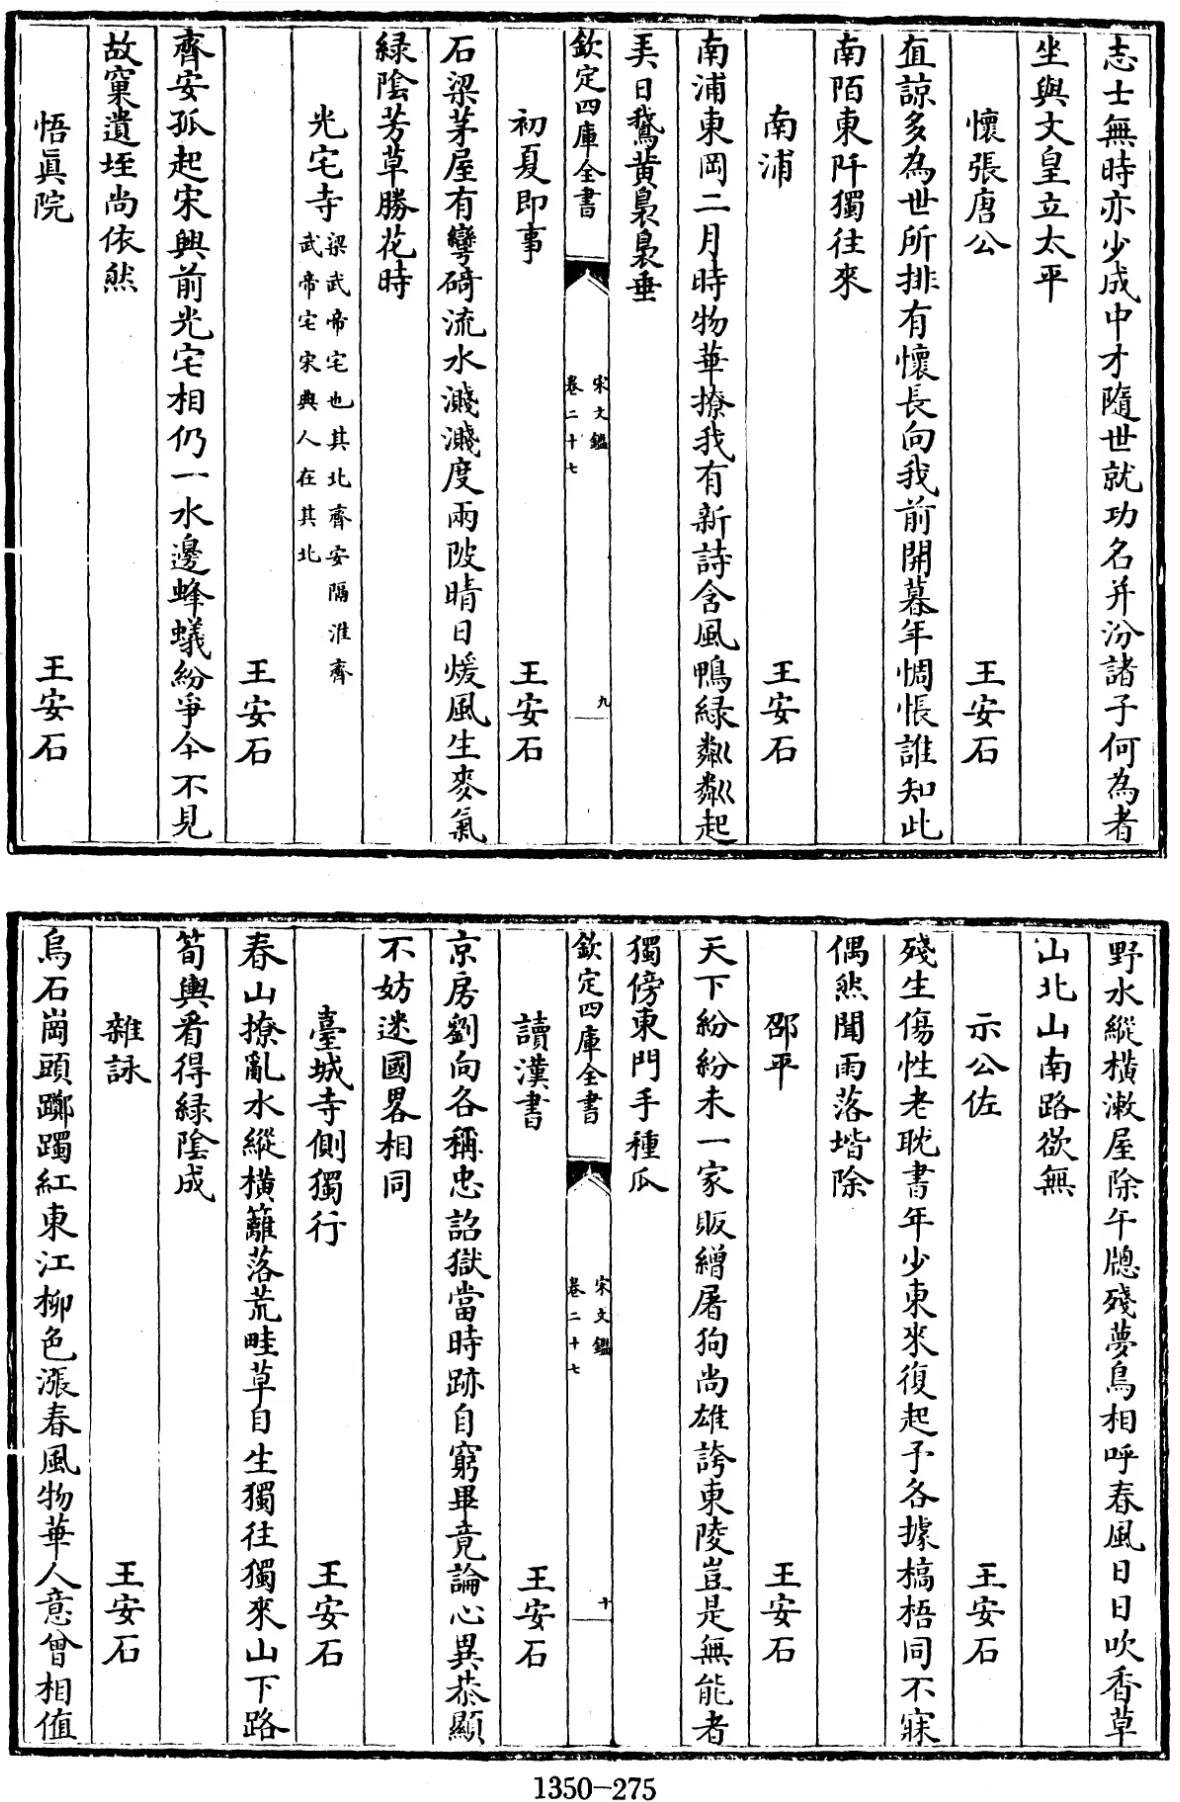 志士無時亦少成中才隨世就功名并汾諸子何為者
坐與文皇立太平
懷張唐公　王安石
直諒多為世所排有懷長向我前開暮年惆悵誰知此
南陌東阡獨往來
南浦　王安石
南浦東岡二月時物華撩我有新詩含風鴨緑粼粼起
弄日鵝黄裊裊垂
欽定四庫全書　宋文鑑
卷二十七　九
初夏即事　王安石
石梁茅屋有彎碕流水濺濺度兩陂晴日煖風生麥氣
緑陰芳草勝花時
光宅寺　梁武帝宅也其北齊安隔淮齊
武帝宅宋興人在其北
王安石
齊安孤起宋興前光宅相仍一水邊蜂蟻紛爭今不見
故窠遺垤尚依然
悟眞院　王安石
野水縱横漱屋除午牎殘夢鳥相呼春風日日吹香草
山北山南路欲無
示公佐　王安石
殘生傷性老耽書年少東來復起予各據槁梧同不寐
偶然聞雨落堦除
邵平　王安石
天下紛紛未一家販繒屠狗尚雄誇東陵豈是無能者
獨傍東門手種瓜
欽定四庫全書　宋文鑑
卷二十七　十
讀漢書　王安石
京房劉向各稱忠詔獄當時跡自窮畢竟論心異恭顯
不妨迷國畧相同
臺城寺側獨行　王安石
春山撩亂水縱横籬落荒畦草自生獨往獨來山下路
筍輿看得緑陰成
雜詠　王安石
烏石崗頭躑躅紅東江柳色漲春風物華人意曾相值
1350-275